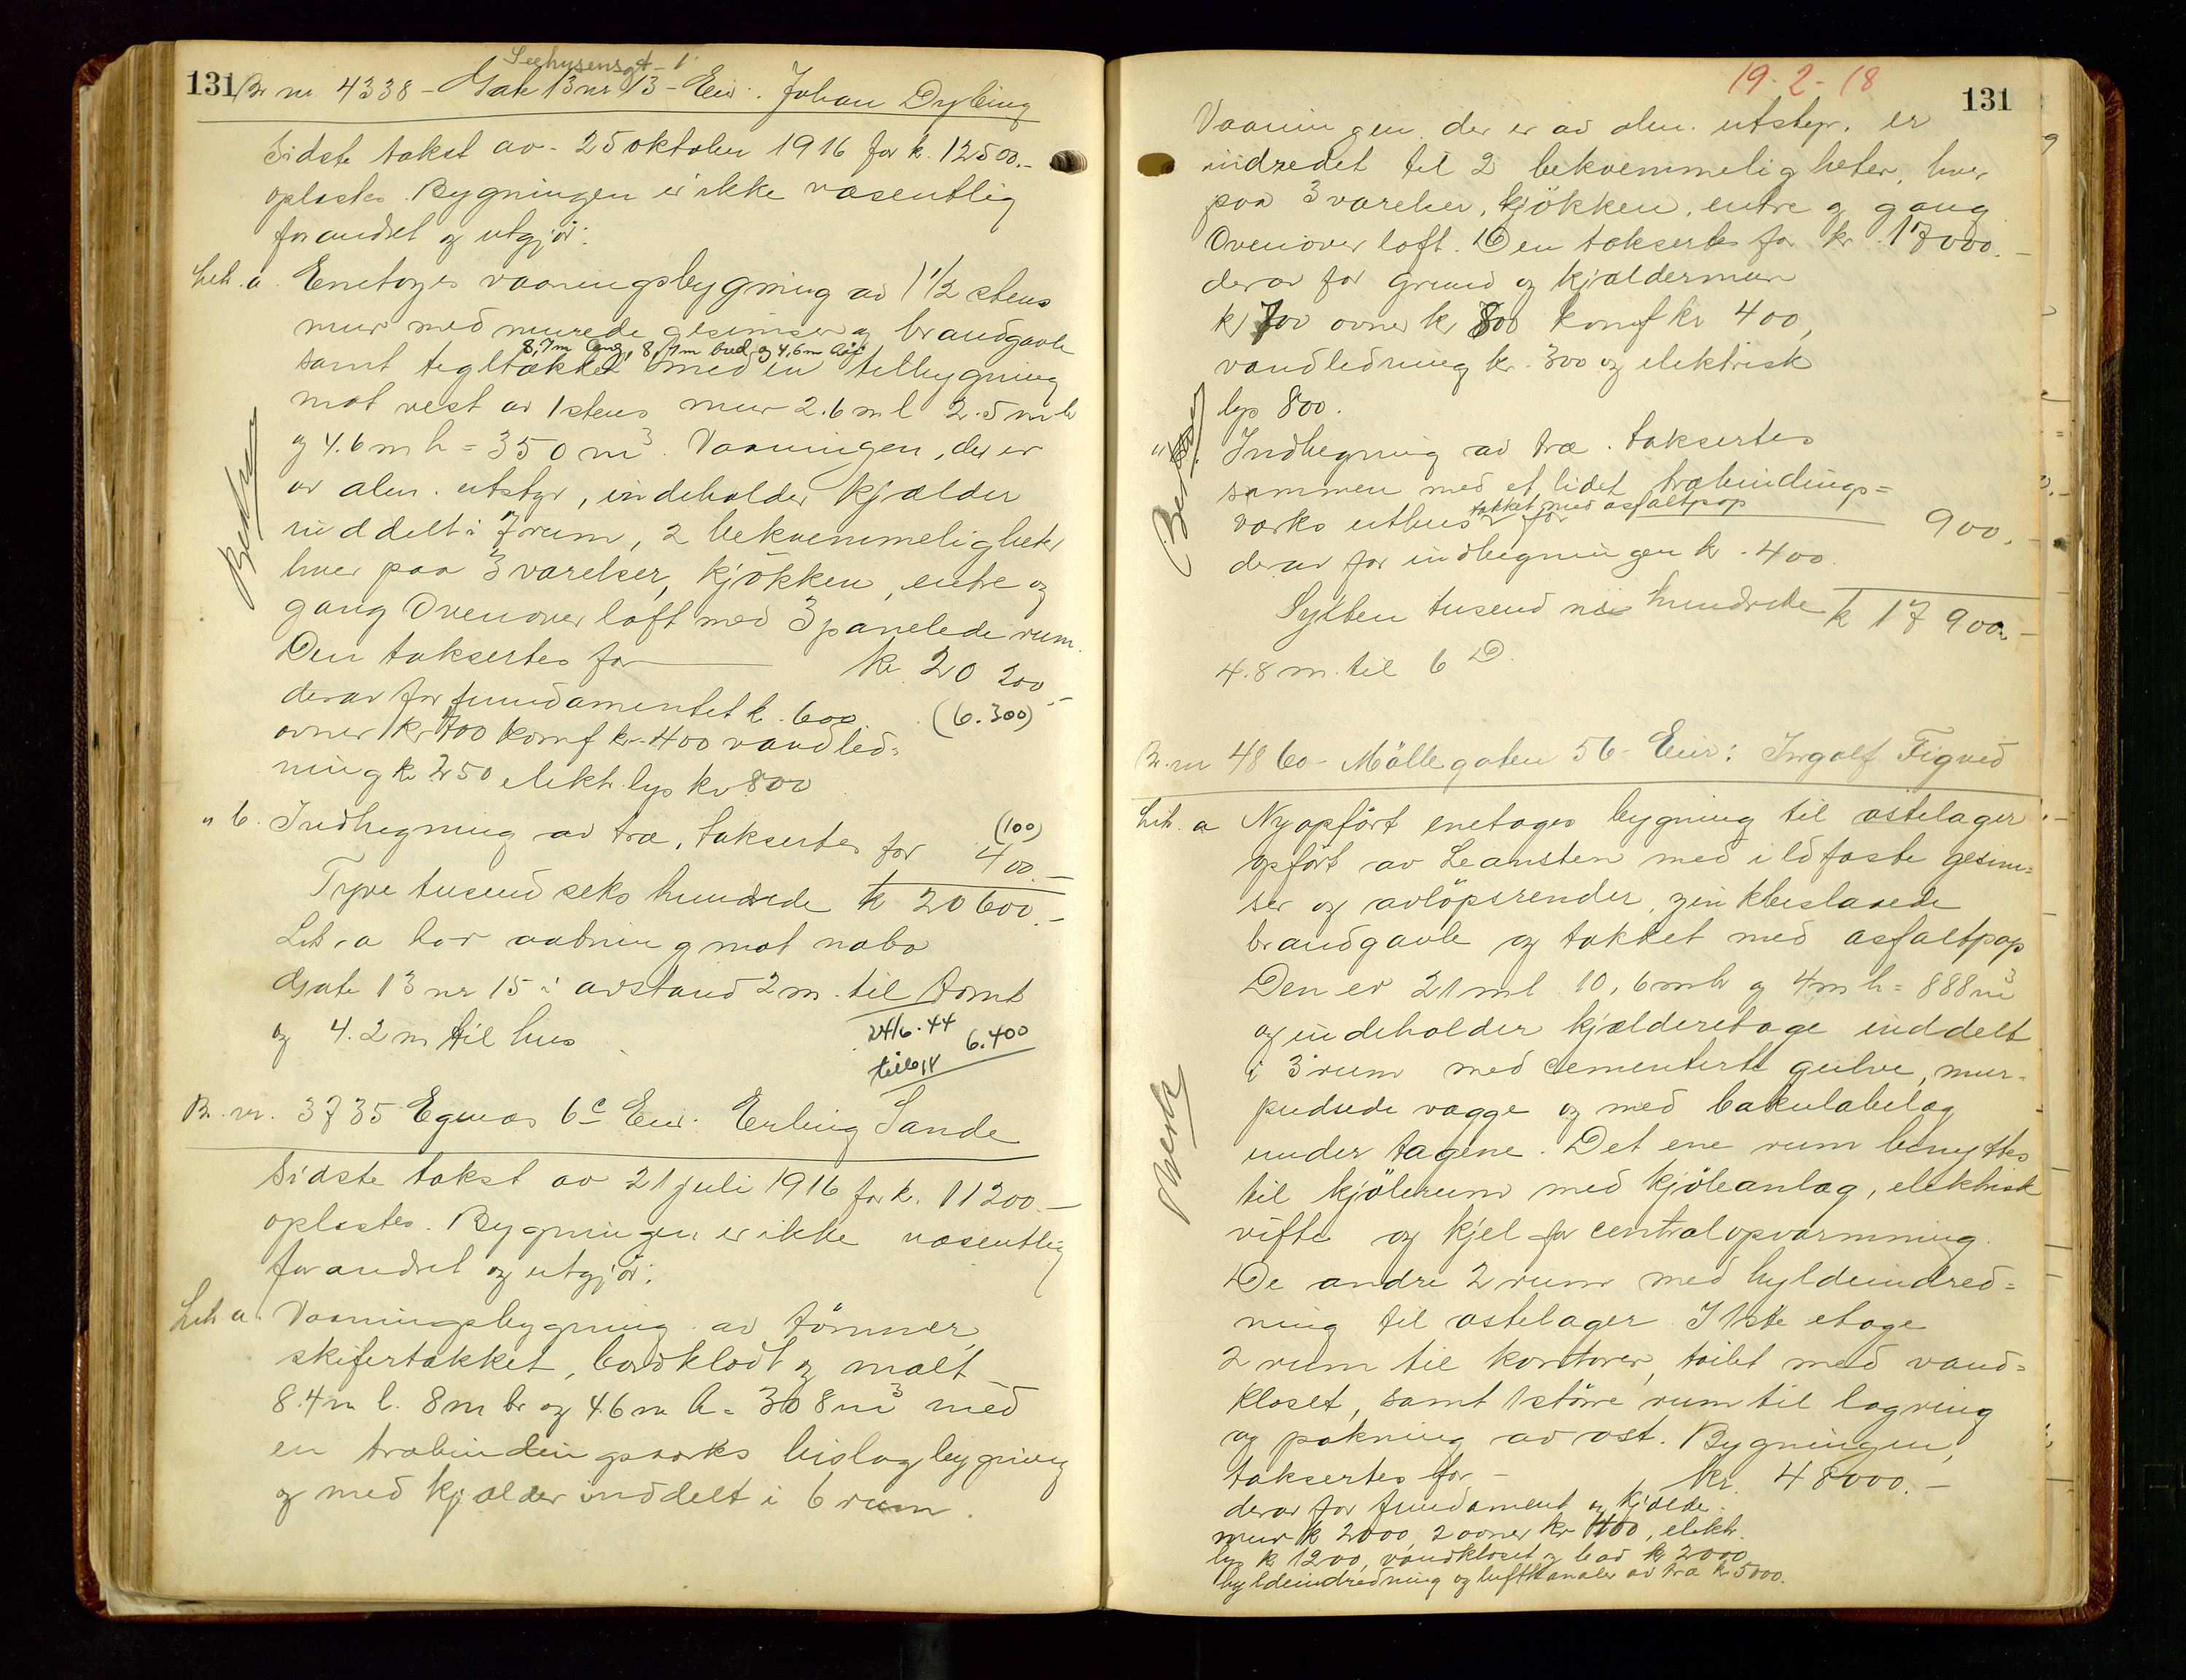 Seehusensgt - 1
131 Br nr 4338 - Gate 13 nr 13 - Eier: Johan Dybing
Sidste takst av - 25 oktober 1916 for k. 12500.-
oplestes. Bygningen er ikke væsentlig
forandret og utgjør:
Lit. a. Enetages vaaningsbygning av 1 1/2 stens
mur med murede gesimser og brandgavle
8,7m lang, 8,7m bred og 4,6m høi
samt tegltækket med en tilbygning
mot vest av 1 stens mur 2.6 m l 2.5 m b
og 4.6 m h = 350 m3. Vaaningen, der er
av alm. utstyr, indeholder kjælder
inddelt i 7 rum, 2 bekvemmeligheter
hver paa 3 værelser, kjøkken, entre og
gang Ovenover loft med 3 panelede rum.
Den taksertes for kr. 20 200.-
derav for fundamentet k. 600. (6.300)
ovner kr 700 komf kr. 400 vandled=
ning kr 250 elektr. lys kr 800
" b. Indhegning av træ, taksertes for 400.- (100)
Tyve tusend seks hundrede k 20600.-
Lit. a har aabning mot nabo
Gate 13 nr 15 i avstand 2 m. til tomt
og 4.2 m til hus
24/6.44 6.400
B. nr. 3735 Egenæs 6c Eier: Erling Sande
Sidste takst av 21 juli 1916 for k. 11200.-
oplestes. Bygningen er ikke væsentlig
forandret og utgjør:
Lit a. Vaaningsbygning av tømmer,
skifertækket, bordklædt og malt
8.4m l. 8m br og 4.6m h = 308 m3 med
en træbindingsværks bislagbygning
og med kjælder inddelt i 6 rum.
19-2-18
131
Vaaningen der er av alm. utstyr. er
indredet til 2 bekvemmeligheter, hver
paa 3 værelser, kjøkken, entre og gang
Ovenover loft. Den taksertes for kr. 17000.-
derav for grund og kjældermur
kr 700 ovner kr 800 komf kr 400,
vandledning kr. 300 og elektrisk
lys 800.
" Indhegning av træ. taksertes
sammen med et lidet træbindings=
tækket med asfaltpap
værks uthus for 900.-
derav for indhegningen kr. 400.
Sytten tusend ni hundrede k 17 900.-
4.8 m. til 6 D.
B. nr 4860 - Møllegaten 56 - Eier: Ingolf Figved
Lit. a Nyopført enetages bygning til ostelager
opført av Leansten med ildfaste gesim=
ser og avløpsrender, zinkbeslaaede
brandgavle og tækket med asfaltpap
Den er 21 m l 10,6 m b og 4 m h = 888 m3
og indeholder kjælderetage inddelt
i 3 rum med cementerte gulve, mur-
pudsede vægge og med bakulabelæg
under tagene. Det ene rum benyttes
til kjølerum med kjøleanlæg, elektrisk
vifte og kjel for centralopvarmning.
De andre 2 rum med hyldeindred=
ning til ostelager. I 1ste etage
2 rum til kontorer, toilet med vand=
kloset, samt 1 større rum til lagring
og pakning av ost. Bygningen,
taksertes for - kr. 48000.-
derav for fundament og kjælder-
mur k 2000, 2 ovner kr 400, elektr.
lys kr 1200, vandkloset og bad kr 2000
hyldeindredning og luftkanaler av træ kr 5000.